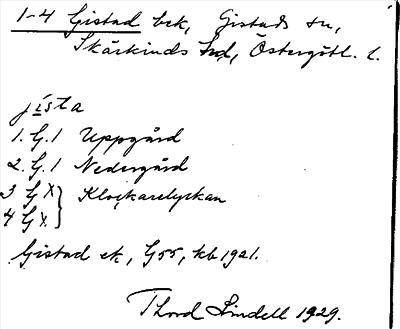 1-4 Gistad bck, Gistads sn,
Skärkinds hd, Östergötl. l.
jista
1. G. 1 Uppgård
2. G. 1 Nedergård
3 G X } Klockarelyckan
4 G X.
Gistad ek, G55, kb 1921.
Thord Lindell 1929.